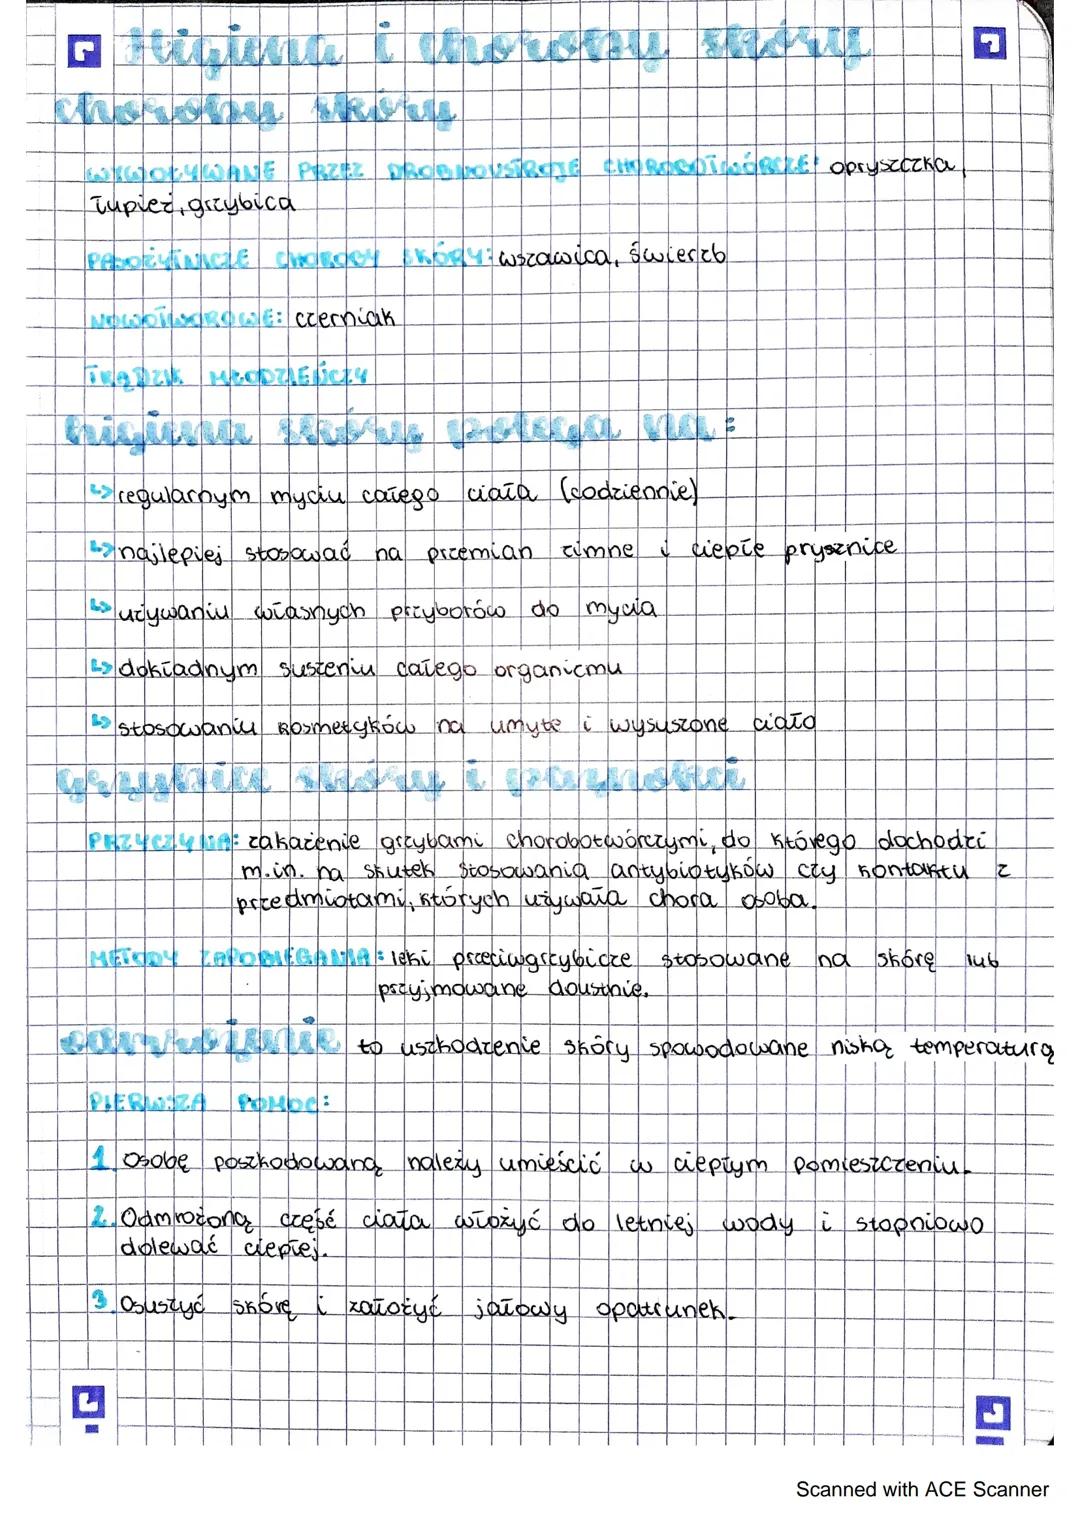 Higiena i choroby skóry
choroby skóry
WYWOŁYWANE PRZEZ DROBNOUSTROJE CHOROBOTWÓRCZE: opryszczka,
łupież, grzybica
PASOŻYTNICZE CHOROBY SKÓRY: wszawica, świerzb
NOWOTWOROWE: czerniak
TRĄDZIK MŁODZIEŃCZY
higiena skóry polega na:
↳ regularnym myciu całego ciała (codziennie)
↳ najlepiej stosować na przemian zimne i ciepłe prysznice
↳ używaniu własnych przyborów do mycia
↳ dokładnym suszeniu całego organizmu
↳ stosowaniu kosmetyków na umyte i wysuszone ciało
grzybice skóry i paznokci
PRZYCZYNA: zakażenie grzybami chorobotwórczymi, do którego dochodzi
m.in. na skutek stosowania antybiotyków czy kontaktu z
przedmiotami, których używała chora osoba.
METODY ZAPOBIEGANIA: leki przeciwgrzybicze stosowane na skórę lub
przyjmowane doustnie.
odmrożenie to uszkodzenie skóry spowodowane niską temperaturą
PIERWSZA POMOC:
1. Osobę poszkodowaną należy umieścić w ciepłym pomieszczeniu.
2. Odmrożoną część ciała włożyć do letniej wody i stopniowo
dolewać cieplej.
3. Osuszyć skórę i założyć jałowy opatrunek.
Scanned with ACE Scanner